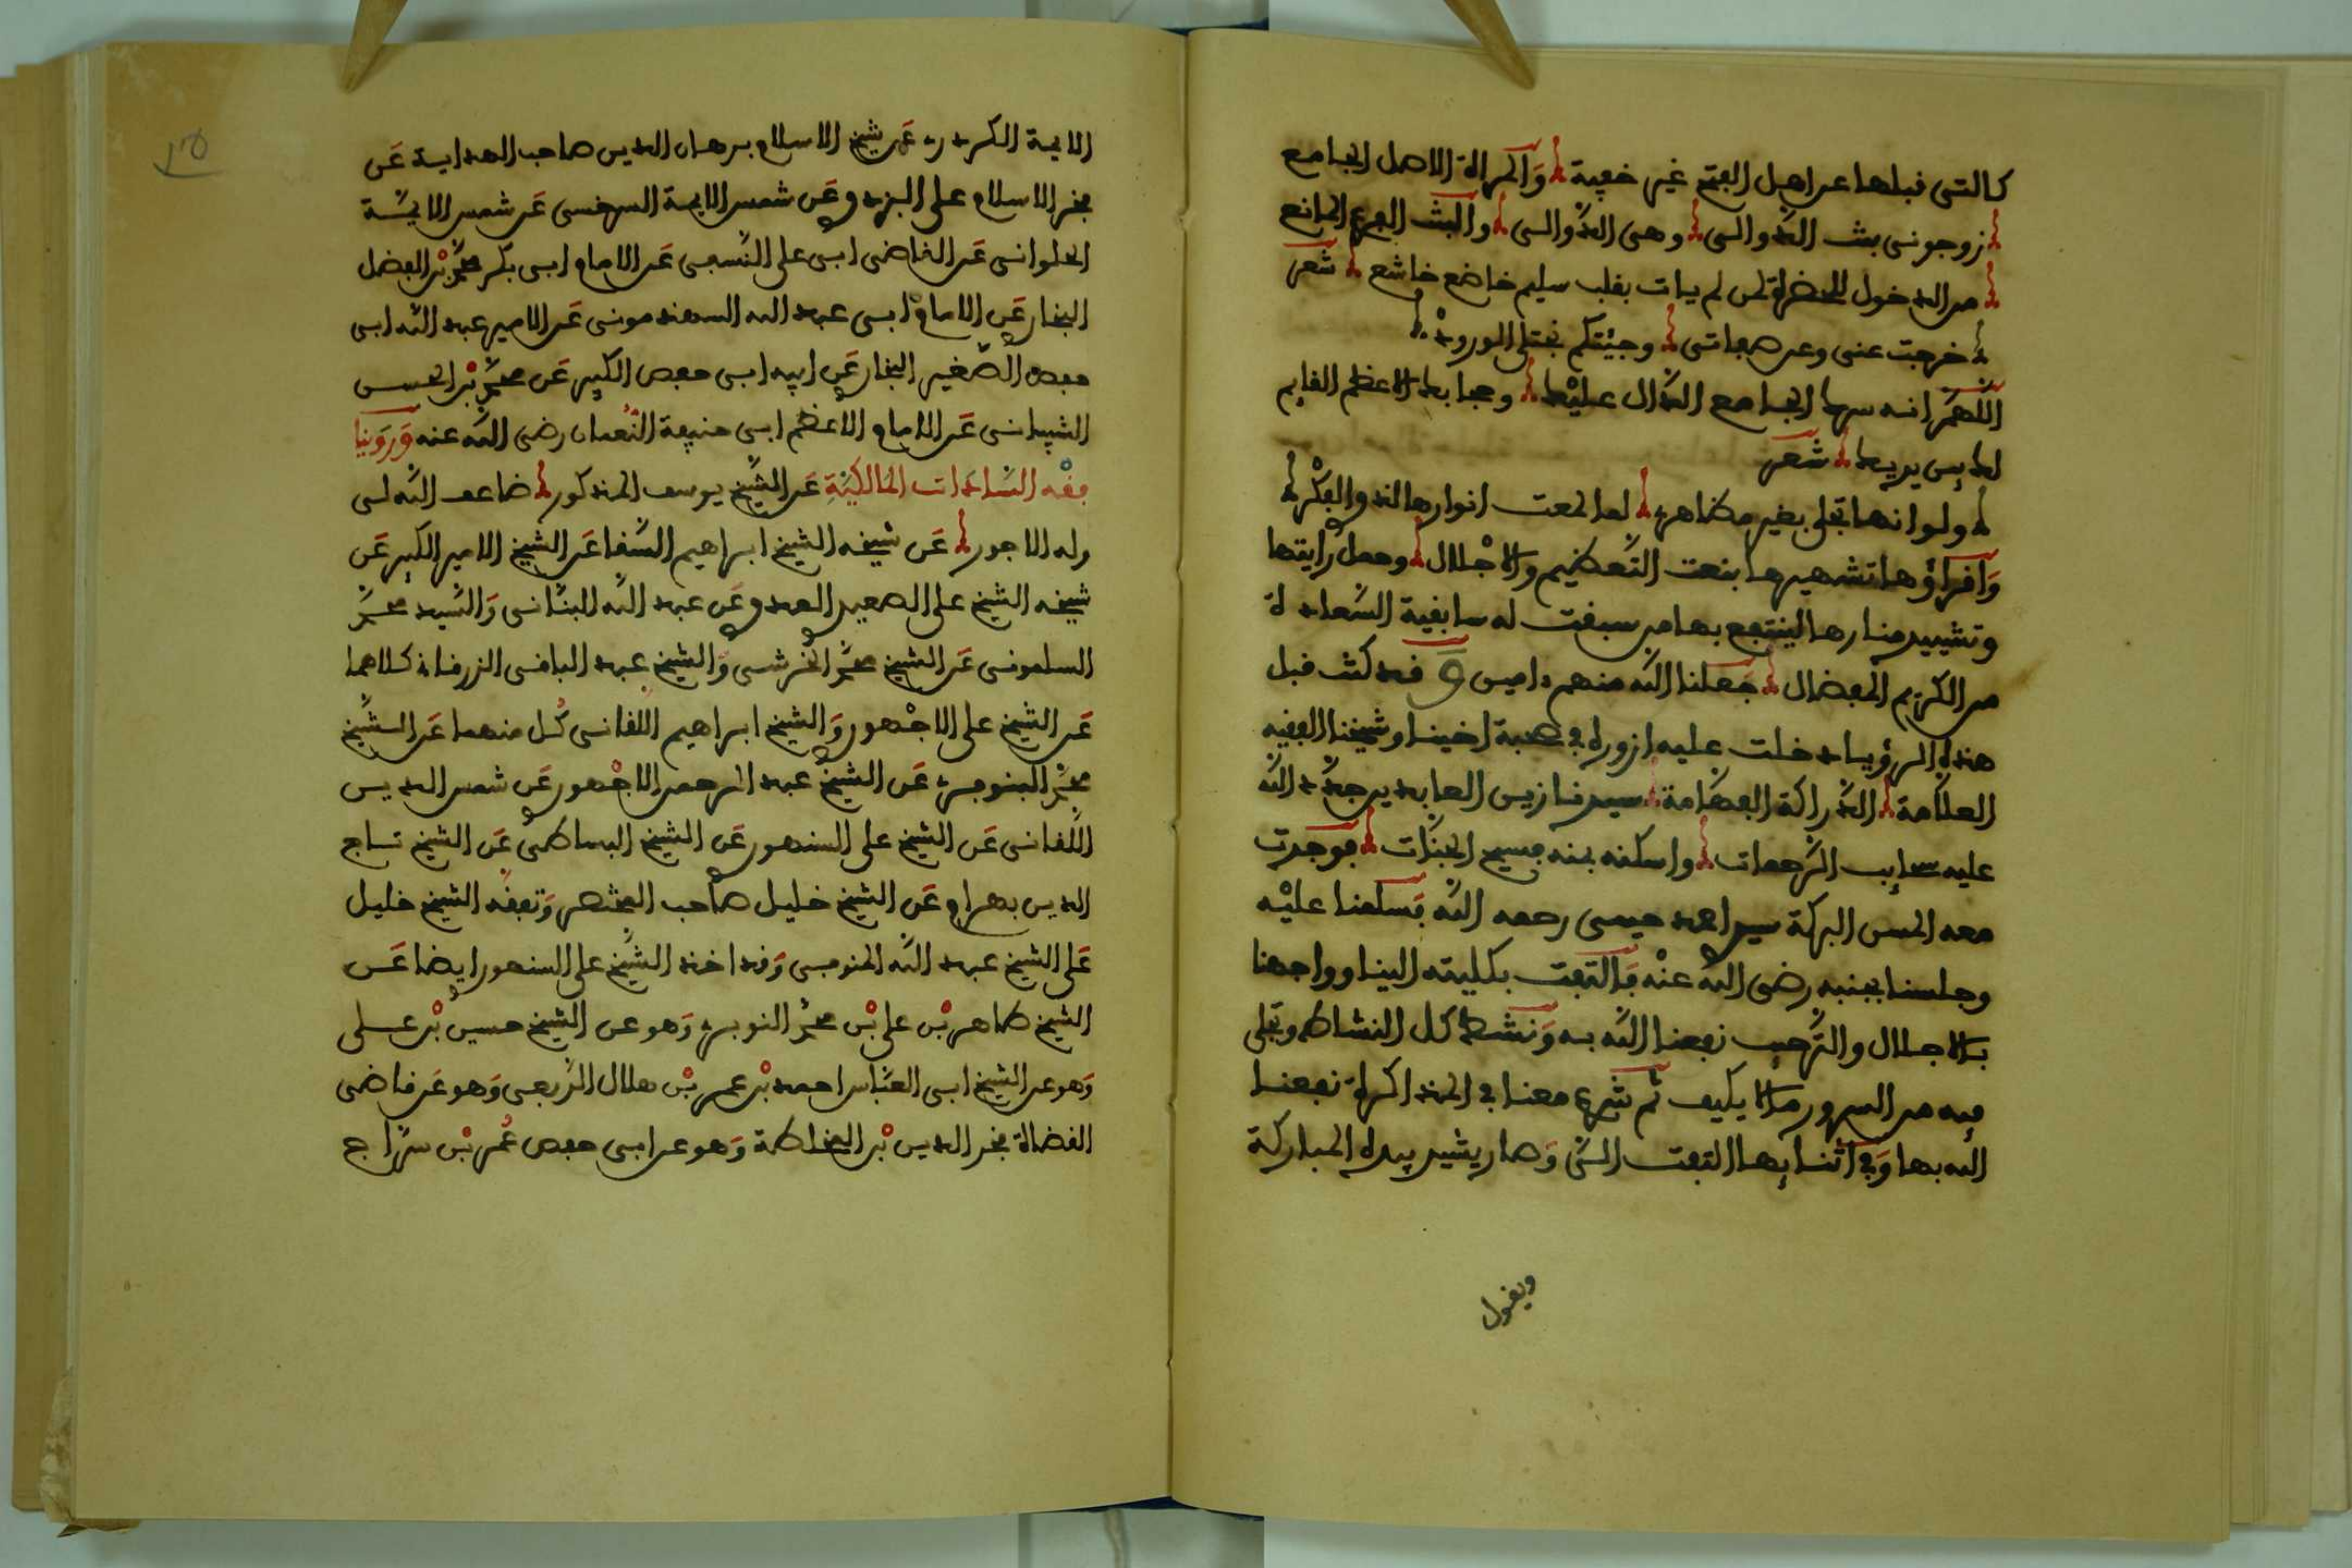 كالتى قبلها عن اهل الفتح غير خفية والمراة الاصل الجامع
زوجونى بنت الدوالى وهى الدوالى والبنت الفرع المانع
من الدخول للحضرة لمن لم يات بقلب سليم خاضع خاشع شعر
خرجت عنى وعن صفاتى وجيتكم نجتلى الورود
اللهم انه سرك الجامع الدال عليك وحجابك الاعظم القايم
لك بين يديك شعر
ولو انها تجلى بغير مظاهر لما لمحت انوارها الند والفكر
واقراؤها تشهيرها بنعت التعظيم والاجلال وحمل رايتها
وتشييد منارها لينتفع بها من سبقت له سابقية السعادة
من الكريم المفضال جعلنا الله منهم ءامين و قد كنت قبل
هذه الرؤيا دخلت عليه ازوره فى صحبة اخينا وشيخنا الفقيه
العلامة الدراكة الفهامة سيدنا زين العابدين جدد الله
عليه سحايب الرحمات واسكنه بمنه فسيح الجنات فوجدت
معه المسن البركة سيدى احمد حيمى رحمه الله فسلمنا عليه
وجلسنا بجنبه رضى الله عنه فالتفت بكليته الينا وواجهنا
بالاجلال والترحيب نفعنا الله به ونشط كل النشاط وتجلى
فيه من السرور ما لا يكيف ثم شرع معنا فى المذاكرة نفعنا
الله بها وفى اثنايها التفت الى وصار يشير بيده المباركة
ويقول
الايمة الكردرى عن شيخ الاسلام برهان الدين صاحب الهداية عن
فخر الاسلام على البزدوى عن شمس الايمة السرخسى عن شمس الايمة
الحلوانى عن القاضى ابى على النسفى عن الامام ابى بكر محمد بن الفضل
البخارى عن الامام ابى عبد الله السبذمونى عن الامير عبد الله ابى
حفص الصغير البخارى عن ابيه ابى حفص الكبير عن محمد بن الحسن
الشيبانى عن الامام الاعظم ابى حنيفة النعمان رضى الله عنه وروينا
فقه السادات المالكية عن الشيخ يوسف المذكور ضاعف الله لى
وله الاجور عن شيخه الشيخ ابراهيم السقا عن الشيخ الامير الكبير عن
شيخه الشيخ على الصعيدى العدوى عن عبد الله البنانى والسيد محمد
السلمونى عن الشيخ محمد الخرشى والشيخ عبد الباقى الزرقانى كلاهما
عن الشيخ على الاجهورى والشيخ ابراهيم اللقانى كل منهما عن الشيخ
محمد البنوفرى عن الشيخ عبد الرحمن الاجهورى عن شمس الدين
اللقانى عن الشيخ على السنهورى عن الشيخ البساطى عن الشيخ تاج
الدين بهرام عن الشيخ خليل صاحب المختصر وتفقه الشيخ خليل
على الشيخ عبد الله المنوفى وقد اخذ الشيخ على السنهورى ايضا عن
الشيخ طاهر بن على بن محمد النويرى وهو عن الشيخ حسين بن على
وهو عن الشيخ ابى العباس احمد بن عمر بن هلال الربعى وهو عن قاضى
القضاة فخر الدين بن المخلطة وهو عن ابى حفص عمر بن سراج